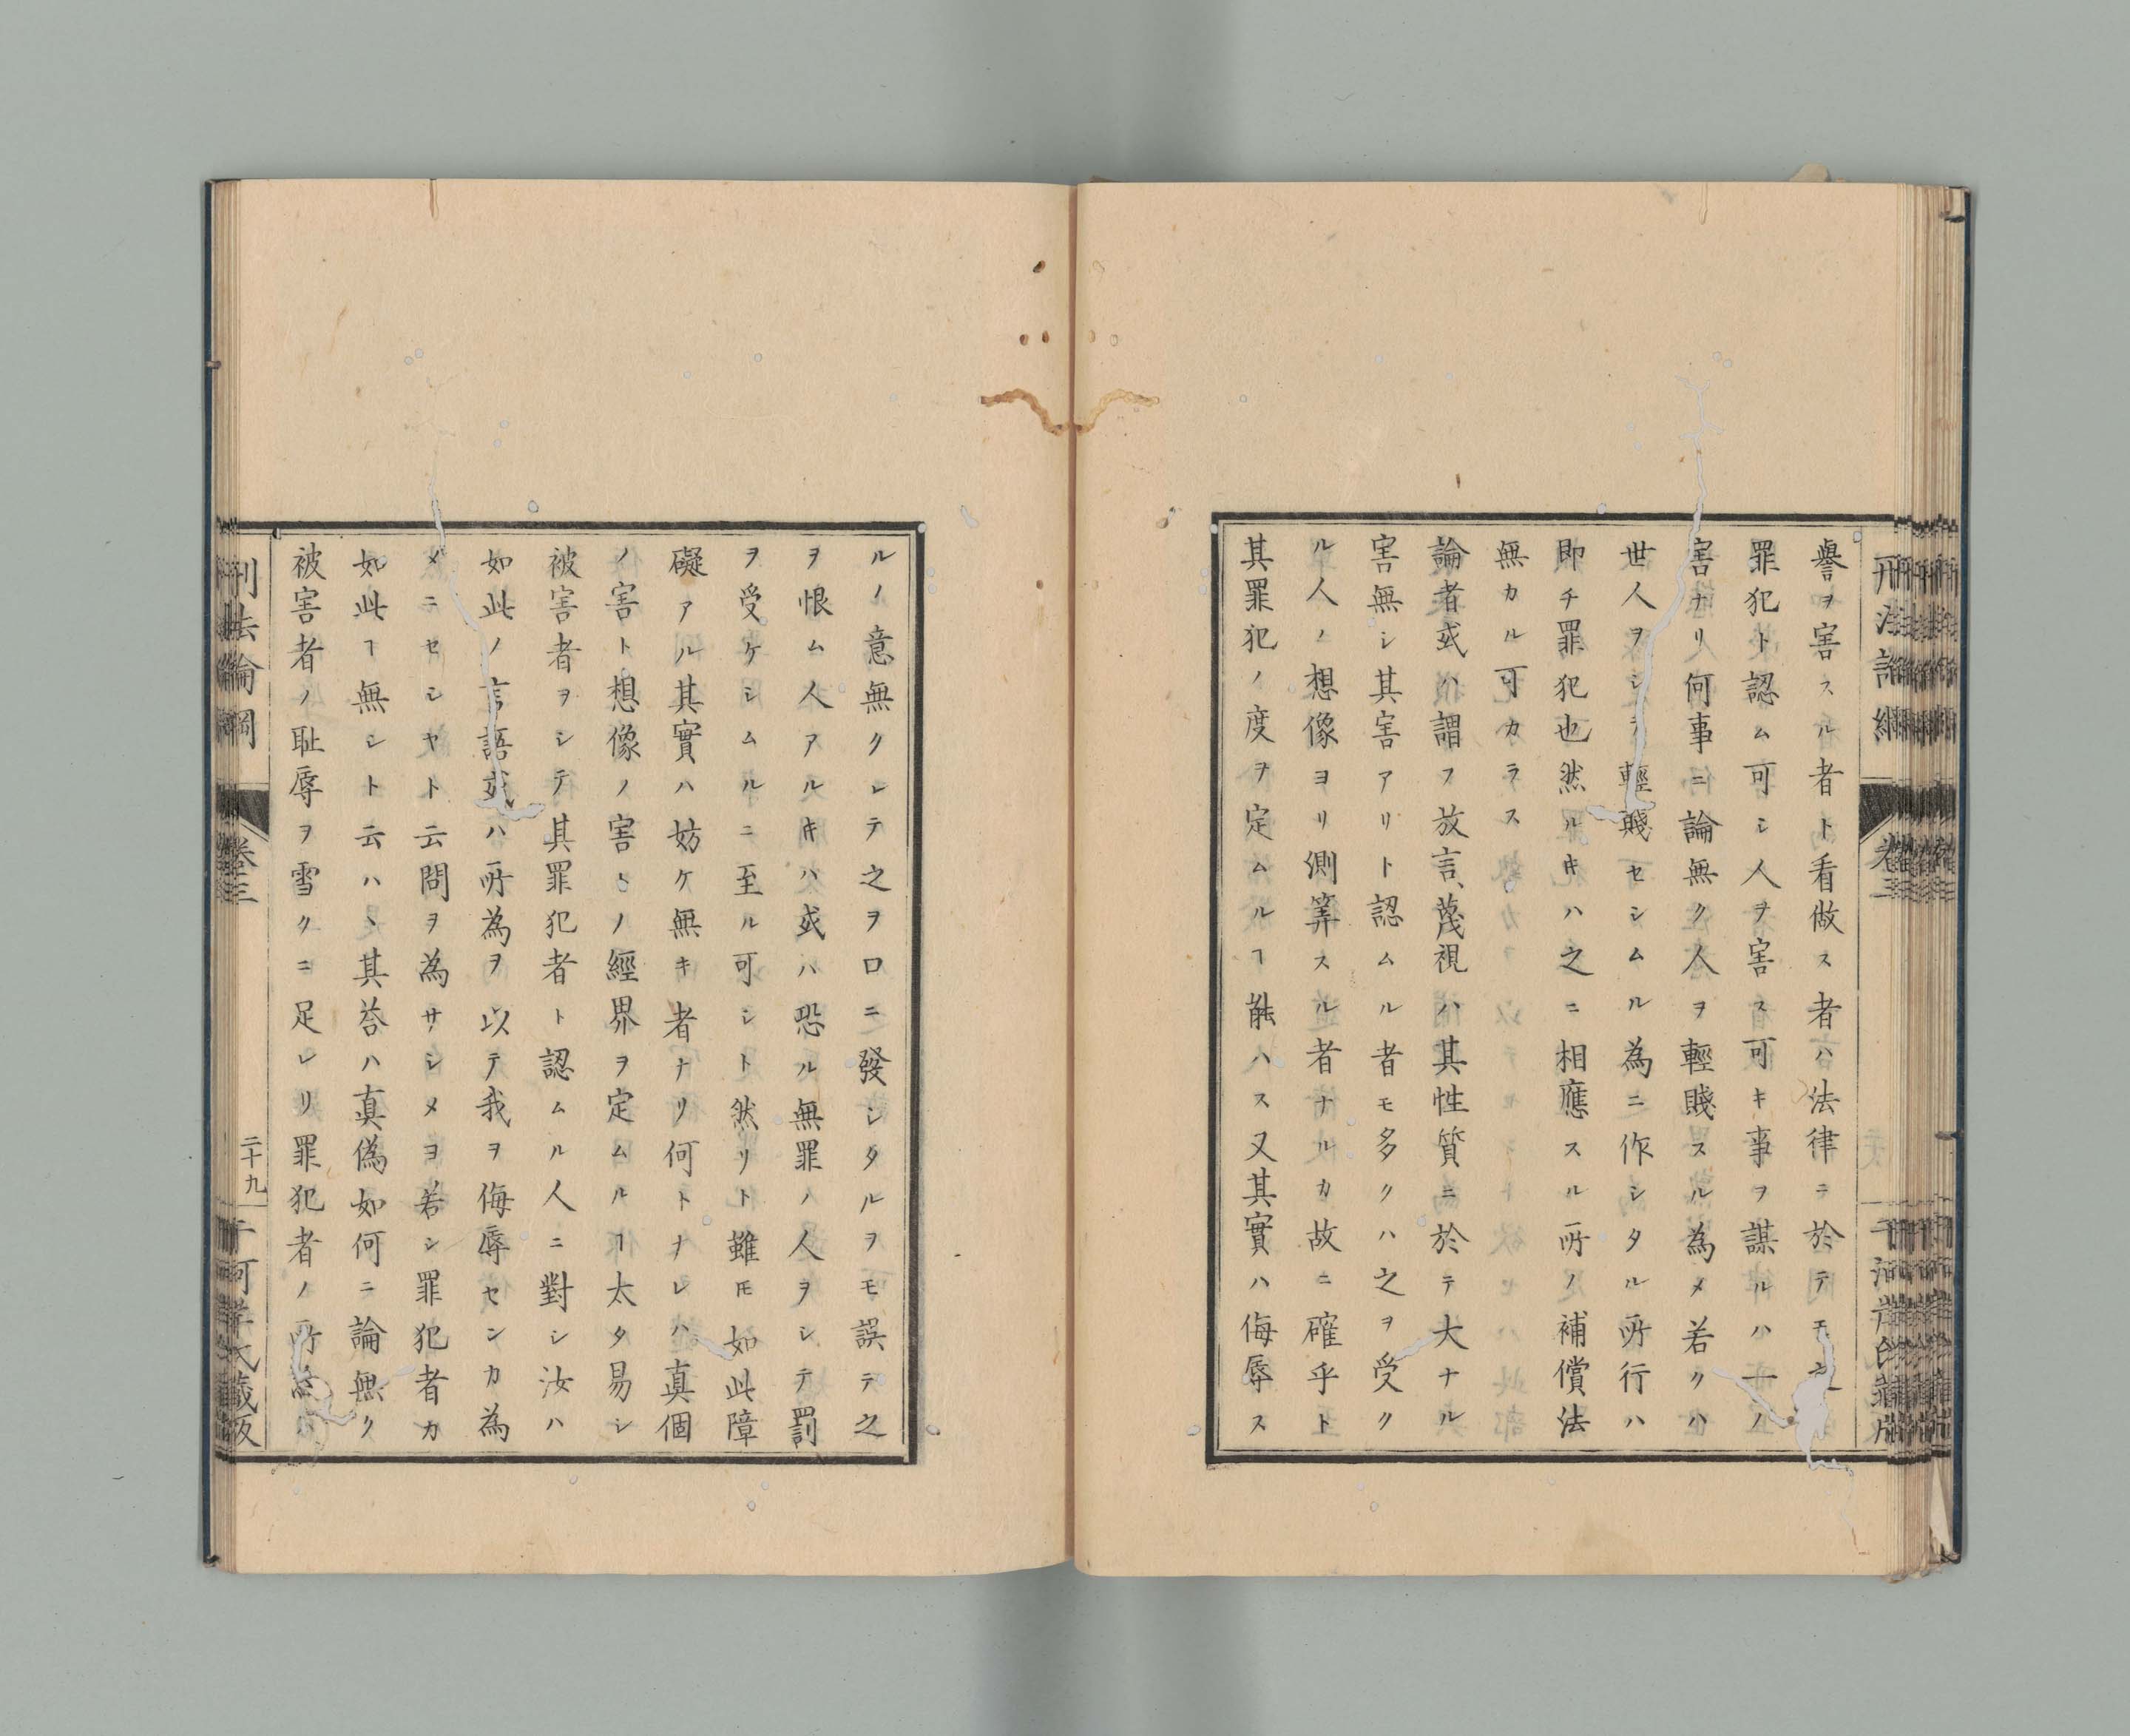 譽ヲ害スル者ト看做ス者ハ法律ニ於テモ
罪犯ト認ム可シ人ヲ害ス可キ事ヲ謀ルハ
害ナリ何事ニ論無ク人ヲ輕賤スル為メ若クハ
世人ヲシテ輕賤セシムル為ニ作シタル所行ハ
即チ罪犯也然ルキハ之ニ相應スル所ノ補償法
無カル可カラス
論者或ハ謂フ放言、蔑視ハ其性質ニ於テ大ナル
害無シ其害アリト認ムル者モ多クハ之ヲ受ク
ル人ノ想像ヨリ測筭スル者ナルカ故ニ確乎ト
其罪犯ノ度ヲ定ムルヿ能ハス又其實ハ侮辱ス
ルノ意無クシテ之ヲ口ニ發シタルヲモ誤テ之
ヲ恨ム人アルキハ或ハ恐ル無罪ノ人ヲシテ罰
ヲ受ケシムルニ至ル可シト然リト雖𪜈如此障
礙アル其實ハ妨ケ無キ者ナリ何トナレハ真個
ノ害ト想像ノ害トノ經界ヲ定ムルヿ太タ易シ
被害者ヲシテ其罪犯者ト認ムル人ニ對シ汝ハ
如此ノ言語或ハ所為ヲ以テ我ヲ侮辱センカ為
メニセシヤト云問ヲ為サシメヨ若シ罪犯者カ
如此ヿ無シト云ハヽ其荅ハ真偽如何ニ論無ク
被害者ノ耻辱ヲ雪クニ足レリ罪犯者ノ所
刑法論綱
卷三
二十九